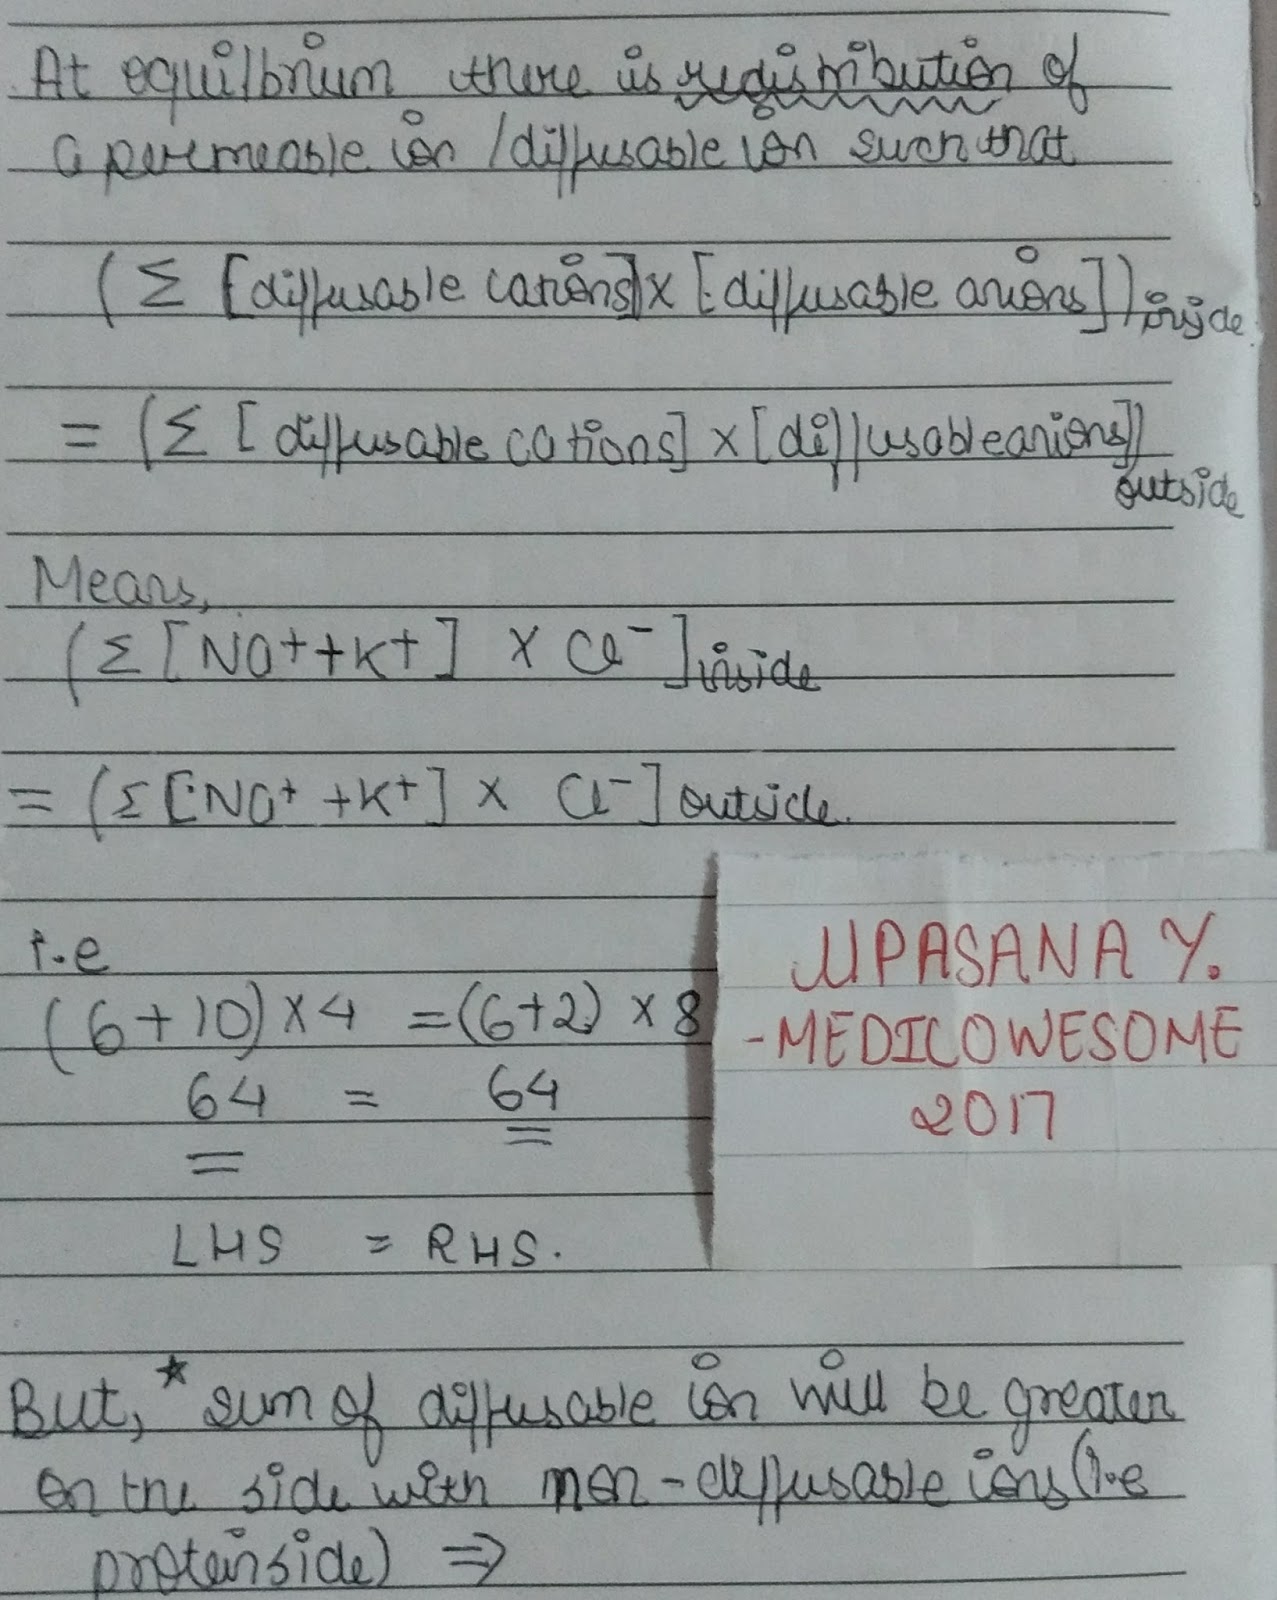 At equilbrium there is redistribution of
a permeable ion / diffusable ion such that
( Σ [diffusable cations] x [diffusable anions] ) inside
= ( Σ [ diffusable cations] x [diffusable anions])
outside
Means,
( Σ [ Na+ + K+ ] x Cl- ] inside
= ( Σ [ Na+ + K+ ] x Cl- ] outside.
i.e
(6+10) x 4 = (6+2) x 8
64 = 64
LHS = RHS.
UPASANA Y.
- MEDICOWESOME
2017
But, * sum of diffusable ion will be greater
on the side with non-diffusable ions (i.e
protein side) ⇒